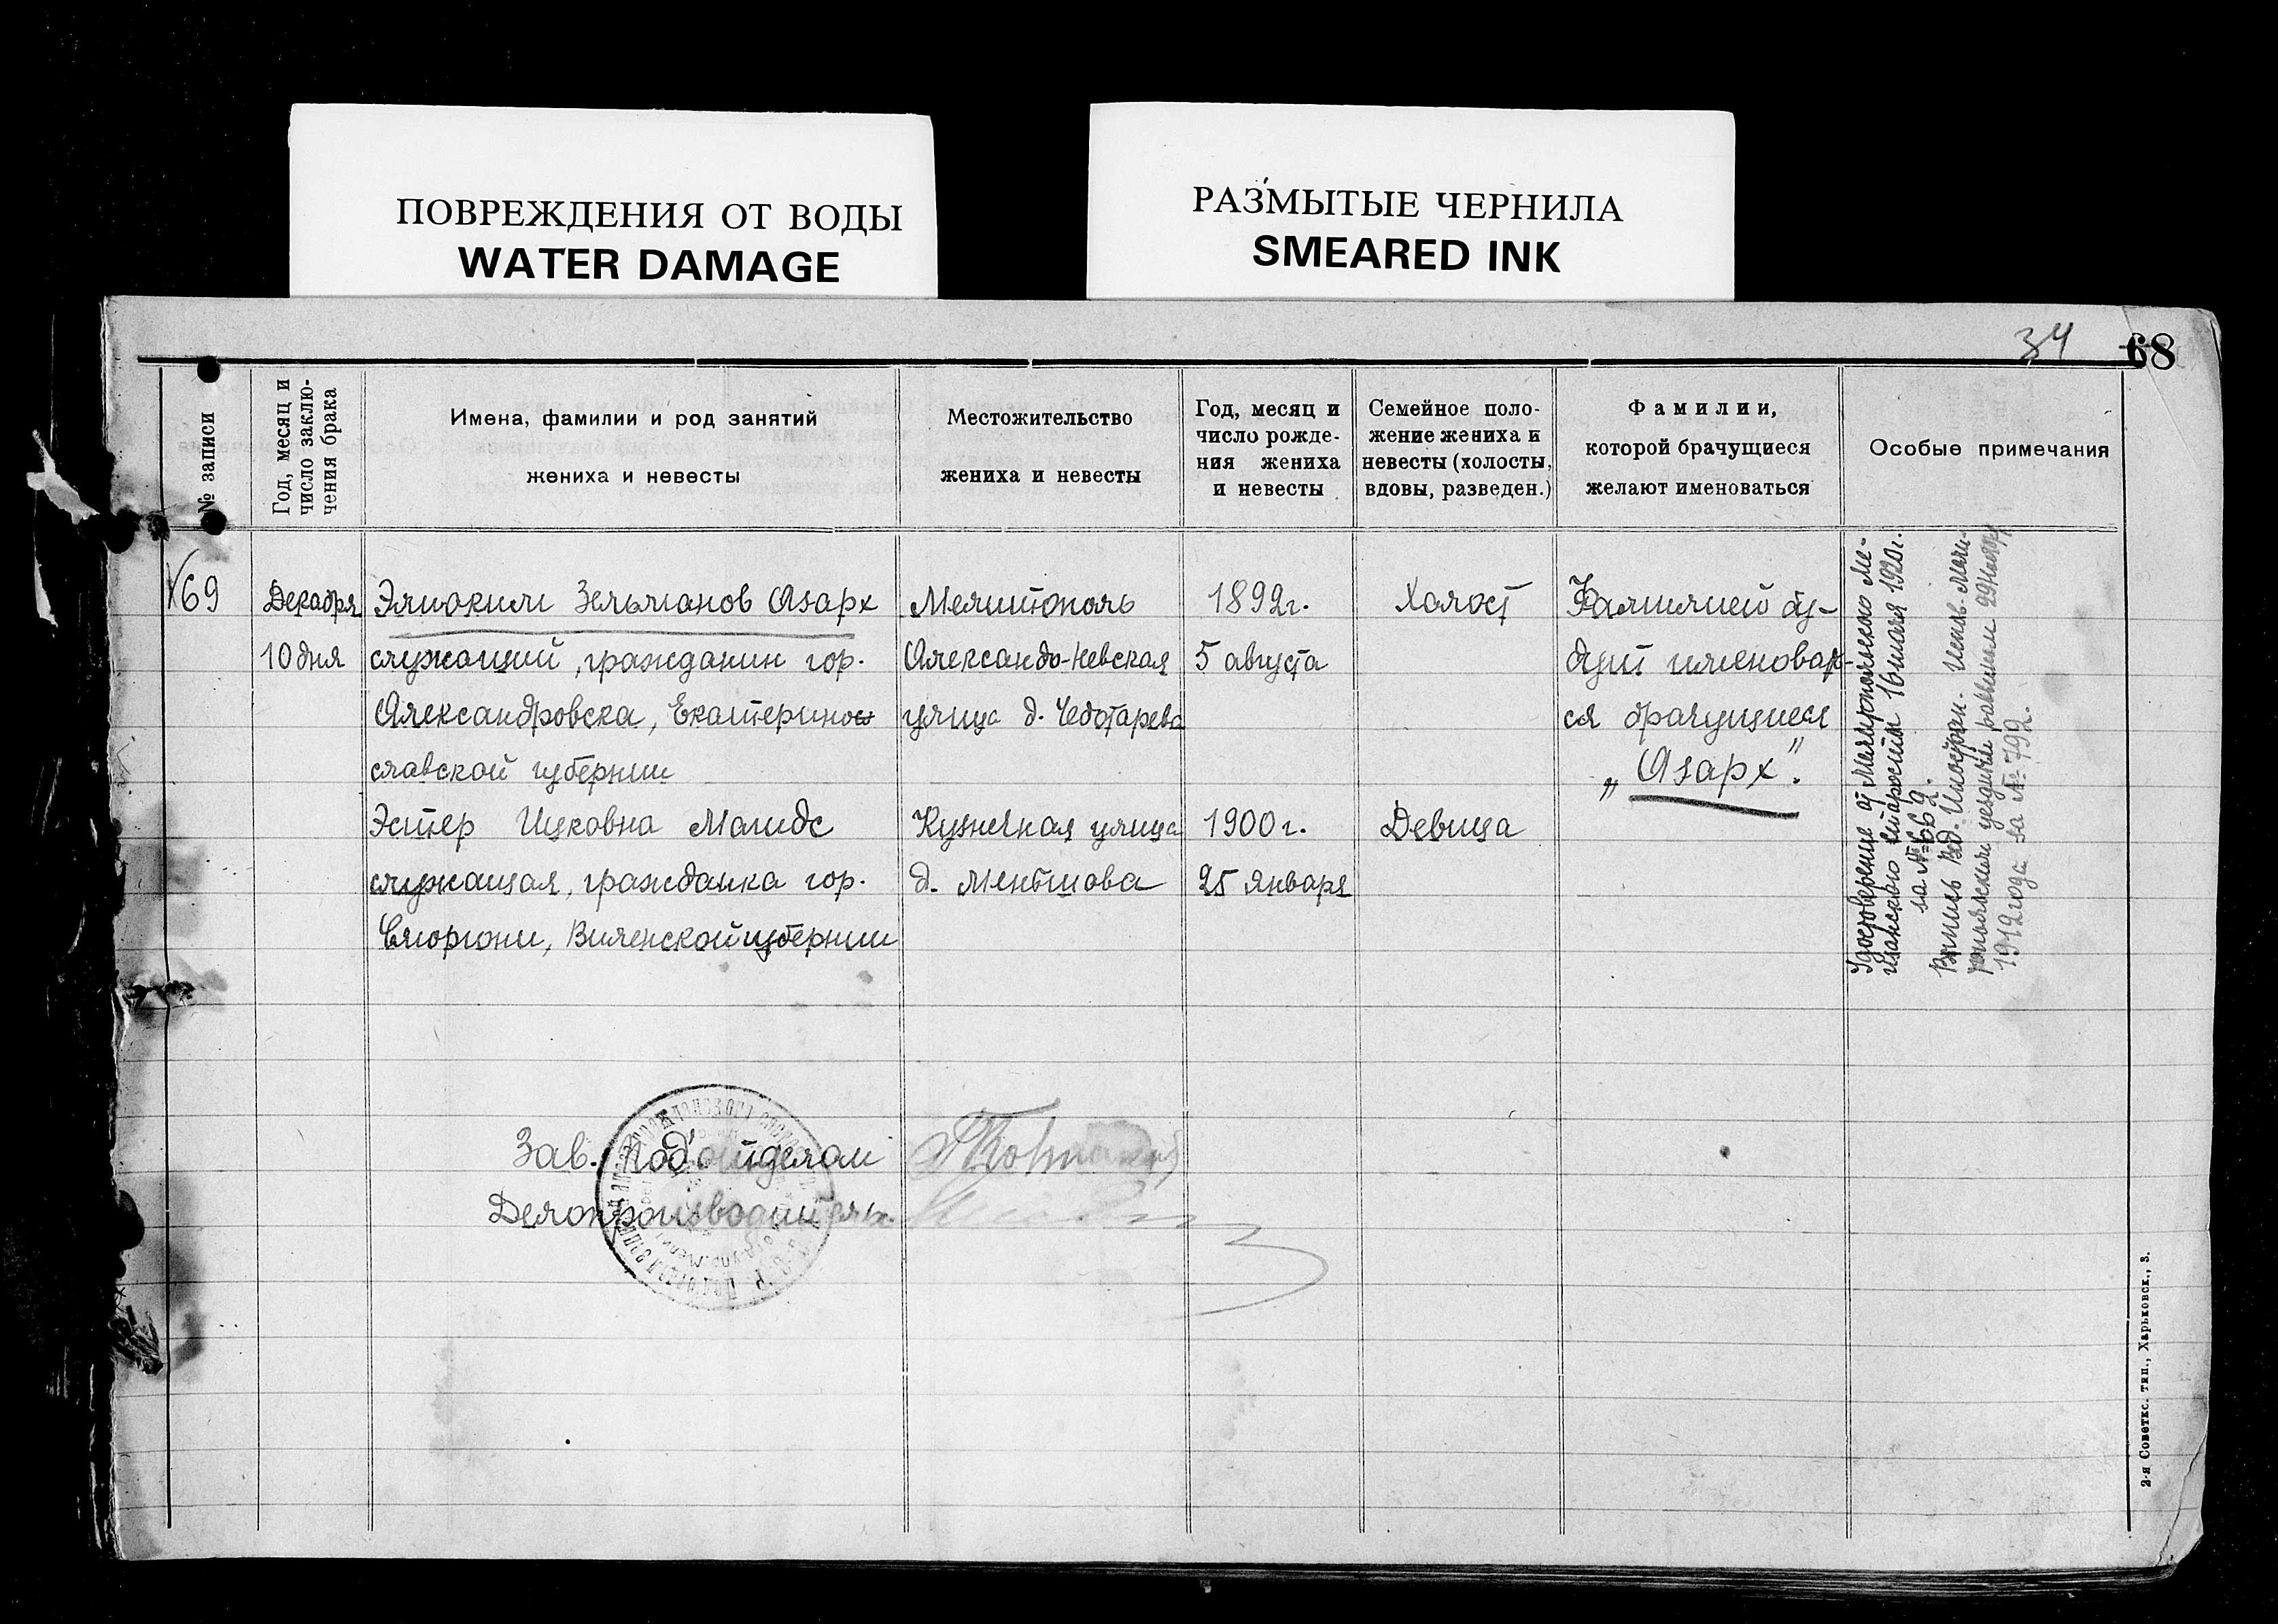 ПОВРЕЖДЕНИЯ ОТ ВОДЫ
WATER DAMAGE
РАЗМЫТЫЕ ЧЕРНИЛА
SMEARED INK
34
68
№ записи
Год, месяц и
число заклю-
чения брака
Имена, фамилии и род занятий
жениха и невесты
Местожительство
жениха и невесты
Год, месяц и
число рожде-
ния жениха
и невесты
Семейное поло-
жение жениха и
невесты (холосты,
вдовы, разведен.)
Фамилии,
которой брачущиеся
желают именоваться
Особые примечания
69
Декабря
10 дня
Элиоким Зельманов Азарх
служащий, гражданин гор.
Александровска, Екатеринос
славской губернии
Эстер Ицковна Магидс
служащая, гражданка гор.
Сморгони, Виленской губернии
Мелитополь
Александо-Невская
улица д. Чеботарева
Кузнечная улица
д. Меньшова
1892 г.
5 августа
1900 г.
25 января
Холост
Девица
Фамилией бу-
дут именоват-
ся брачущиеся
„Азарх".
Удостоверение от Мелитопольского Ме-
щанского старосты 16 мая 1920 г.
за № 669.
Выпись выд. Мели-
топольским уездным раввином 29 ноября
1912 года за № 792.
Зав. Подотделом
Делопроизводитель
2-я Советкс. тип., Харьковск., 3.